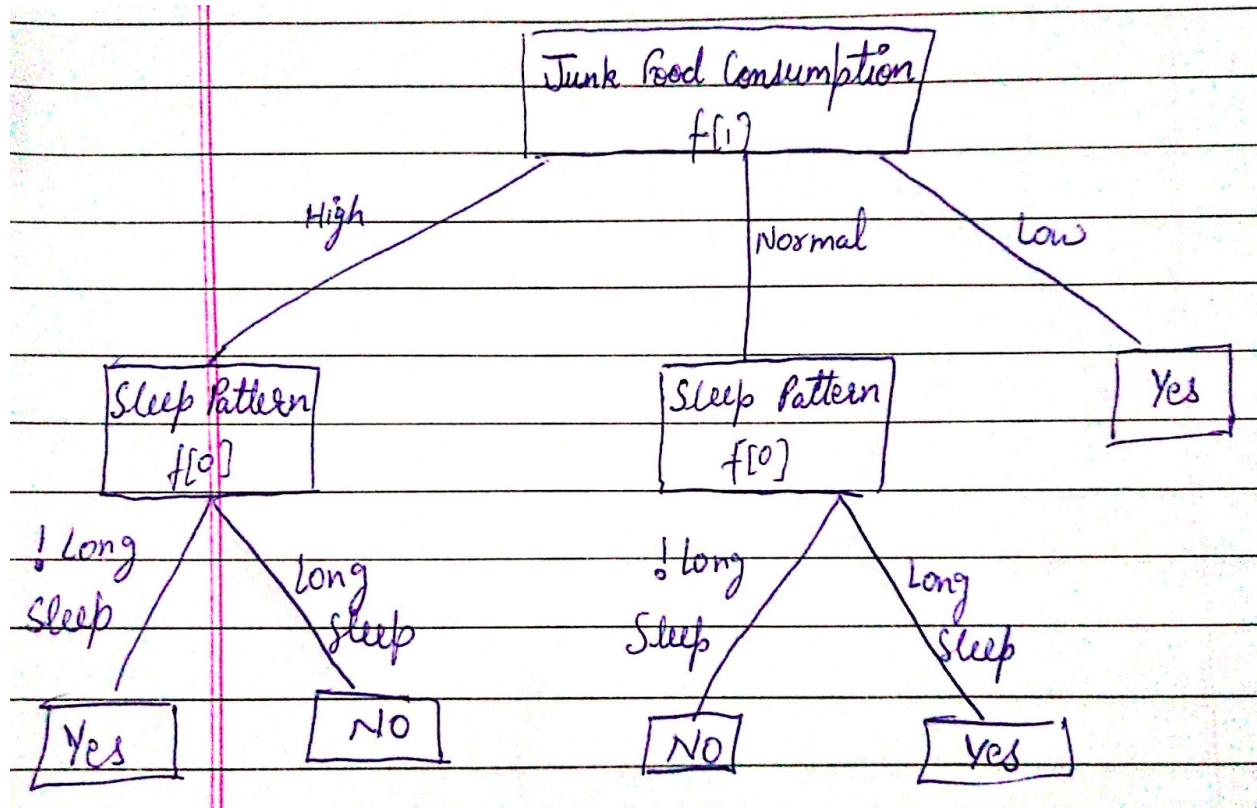 Junk Food Consumption
f[1]
High
Normal
Low
Sleep Pattern
f[0]
Sleep Pattern
f[0]
Yes
! Long
Sleep
Long
Sleep
! Long
Sleep
Long
Sleep
Yes
NO
NO
Yes